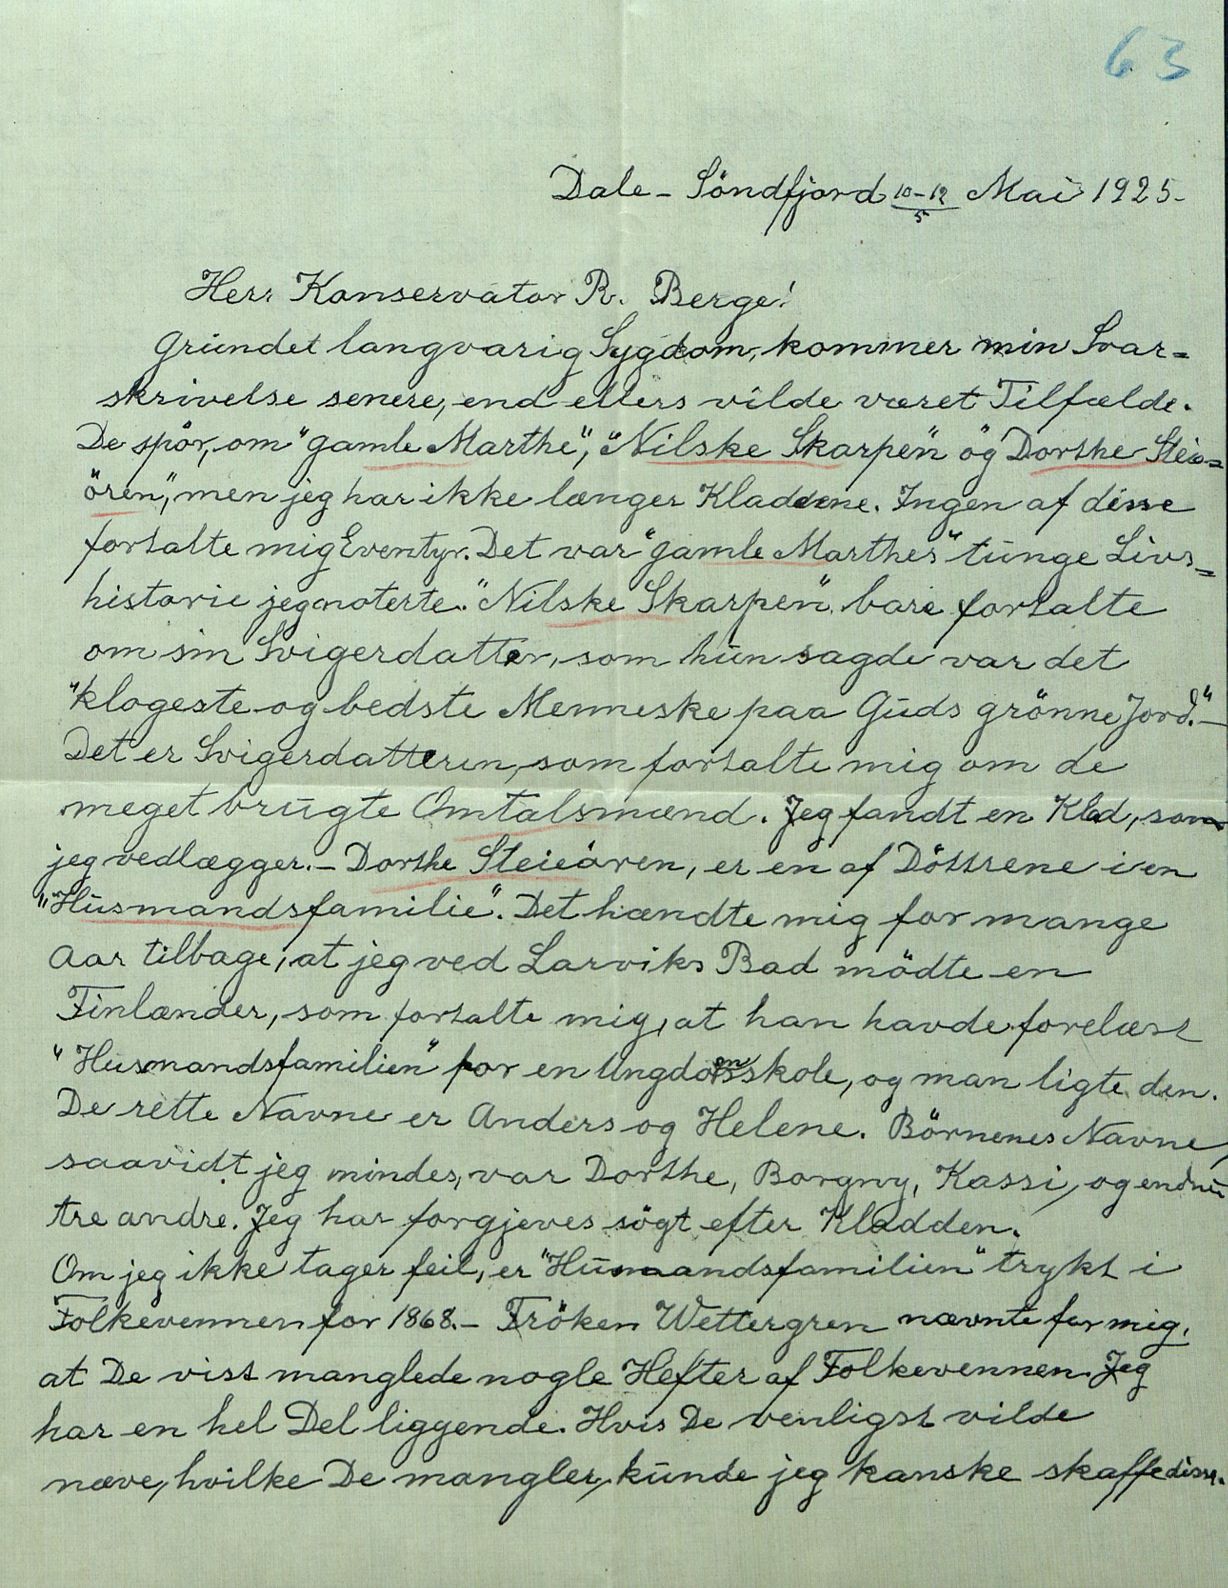 63
Dale - Söndfjord 10-12/5 Mai 1925.
Herr Konservator R. Berge!
Grundet langvarig Sygdom, kommer min Svar=
skrivelse senere, end ellers vilde været Tilfælde.
De spör, om "gamle Marthe", "Nilske Skarpen" og Dorthe Stei=
ören", men jeg har ikke længer Kladdene. Ingen af disse
fortalte mig Eventyr. Det var "gamle Marthes" tunge Livs=
historie jeg noterte. "Nilske Skarpen" bare fortalte
om sin Svigerdatter, som hun sagde var det
"klogeste og bedste Menneske paa Guds grönne Jord." —
Det er Svigerdatteren, som fortalte mig om de
meget brugte Omtalsmænd. Jeg fandt en Klad, som
jeg vedlægger. - Dorthe Steieören, er en af Döttrene i en
"Husmandsfamilie". Det hændte mig for mange
Aar tilbage, at jeg ved Larviks Bad mödte en
Finlænder, som fortalte mig, at han havde forelæst
"Husmandsfamilien" for en Ungdomsskole, og man ligte den.
De rette Navne er Anders og Helene. Börnenes Navne,
saavidt jeg mindes, var Dorthe, Borgny, Kassi, og endnu
tre andre. Jeg har forgjeves sögt efter Kladden.
Om jeg ikke tager feil, er "Husmandsfamilien" trykt i
Folkevennen for 1868. - Fröken Wettergren nævnte for mig,
at De vist manglede nogle Hefter af Folkevennen. Jeg
har en hel Del liggende. Hvis De venligst vilde
næve, hvilke De mangler, kunde jeg kanske skaffe disse.